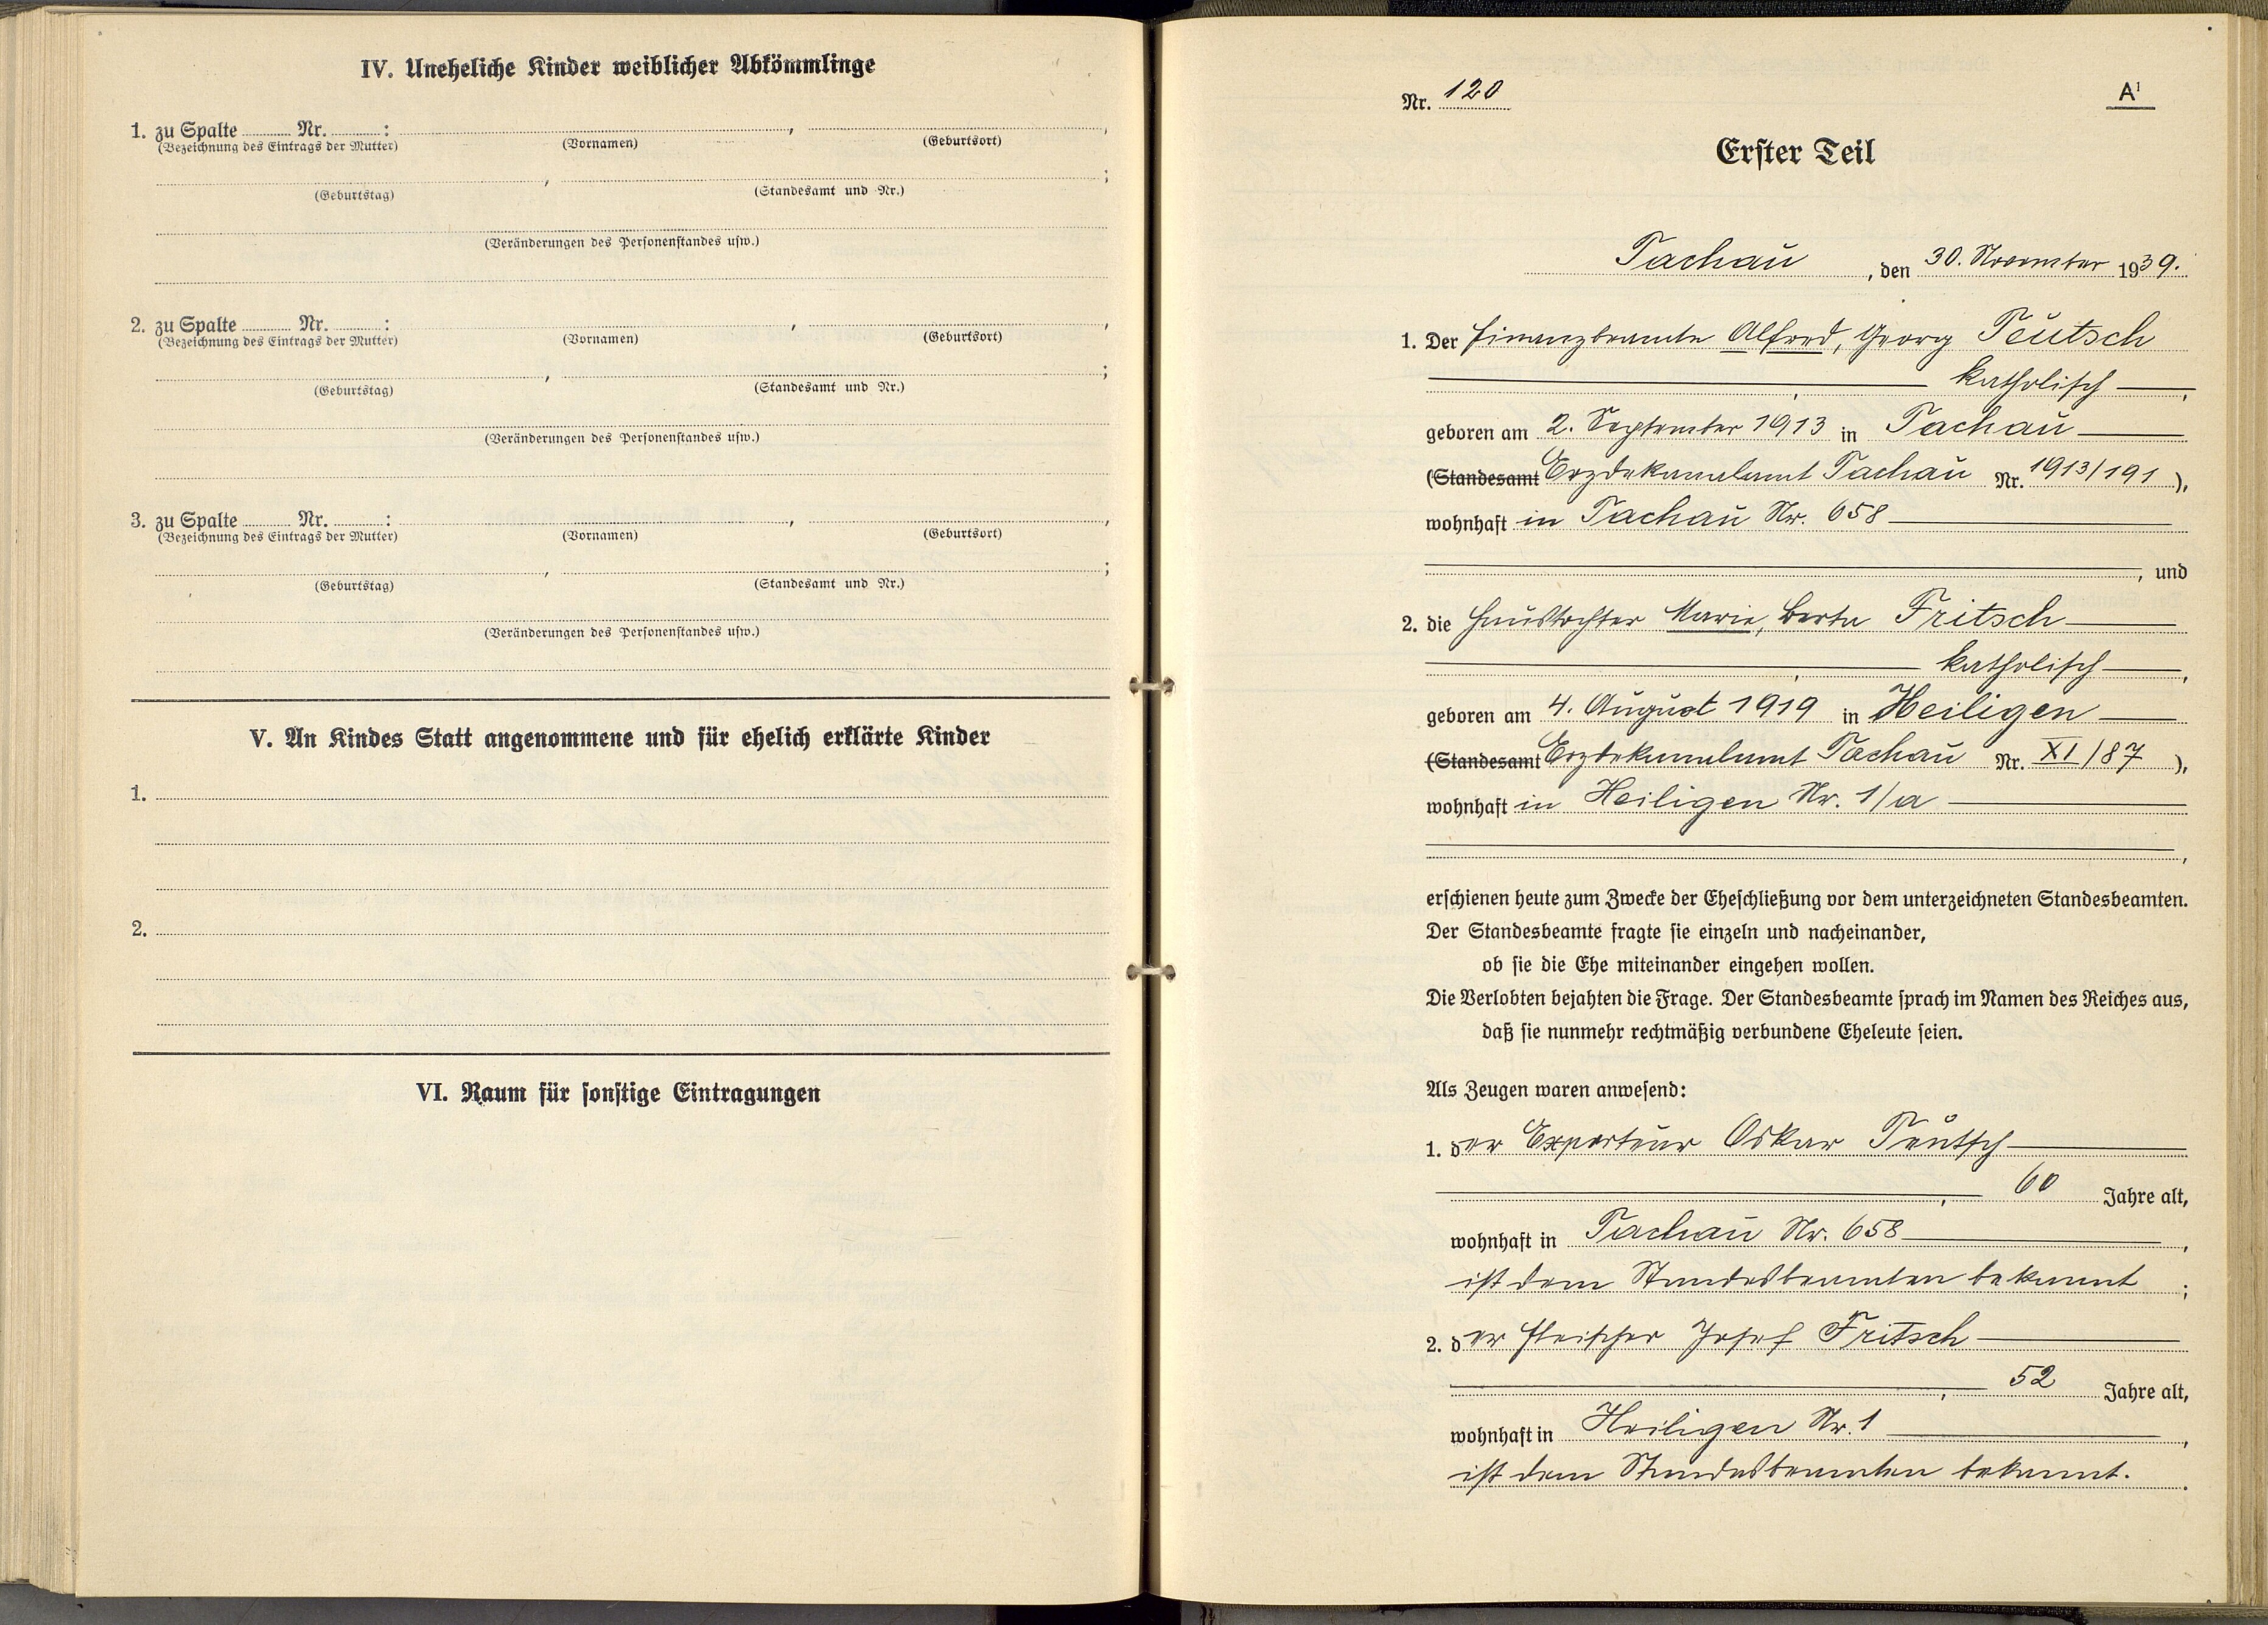 IV. Uneheliche Kinder weiblicher Abkömmlinge
1. zu Spalte ........ Nr. ........ : ........, ........,
(Bezeichnung des Eintrags der Mutter) (Vornamen) (Geburtsort)
........, ........;
(Geburtstag) (Standesamt und Nr.)
(Veränderungen des Personenstandes usw.)
2. zu Spalte ........ Nr. ........ : ........, ........,
(Bezeichnung des Eintrags der Mutter) (Vornamen) (Geburtsort)
........, ........;
(Geburtstag) (Standesamt und Nr.)
(Veränderungen des Personenstandes usw.)
3. zu Spalte ........ Nr. ........ : ........, ........,
(Bezeichnung des Eintrags der Mutter) (Vornamen) (Geburtsort)
........, ........;
(Geburtstag) (Standesamt und Nr.)
(Veränderungen des Personenstandes usw.)
V. An Kindes Statt angenommene und für ehelich erklärte Kinder
1.
2.
VI. Raum für sonstige Eintragungen
Nr. 120 A¹
Erster Teil
Tachau, den 30. November 1939.
1. Der Finanzbeamte Alfred, Georg Teutsch
, katholisch,
geboren am 2. September 1913 in Tachau
(Standesamt Erzdekanalamt Tachau Nr. 1913/191),
wohnhaft in Tachau Nr. 658
, und
2. die Haustochter Marie, Berta Fritsch
, katholisch,
geboren am 4. August 1919 in Heiligen
(Standesamt Erzdekanalamt Tachau Nr. XI/87),
wohnhaft in Heiligen Nr. 1/a
,
erschienen heute zum Zwecke der Eheschließung vor dem unterzeichneten Standesbeamten.
Der Standesbeamte fragte sie einzeln und nacheinander,
ob sie die Ehe miteinander eingehen wollen.
Die Verlobten bejahten die Frage. Der Standesbeamte sprach im Namen des Reiches aus,
daß sie nunmehr rechtmäßig verbundene Eheleute seien.
Als Zeugen waren anwesend:
1. der Exporteur Oskar Teutsch
, 60 Jahre alt,
wohnhaft in Tachau Nr. 658,
ist dem Standesbeamten bekannt;
2. der Fleischer Josef Fritsch
, 52 Jahre alt,
wohnhaft in Heiligen Nr. 1,
ist dem Standesbeamten bekannt.